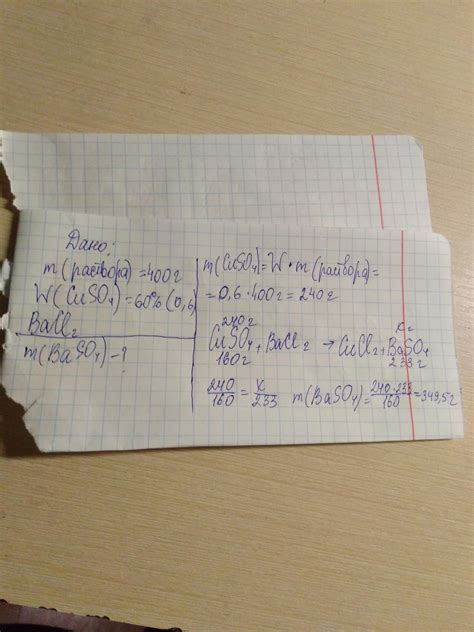 Дано:
m(раствора)=400г
W(CuSO₄)=60% (0,6)
BaCl₂
m(BaSO₄)-?
m(CuSO₄)=W·m(раствора)=
=0,6·400г=240г
240г xг
CuSO₄+BaCl₂ → CuCl₂+BaSO₄
160г 233г
240/160=x/233 m(BaSO₄)=240·233/160=349,5г